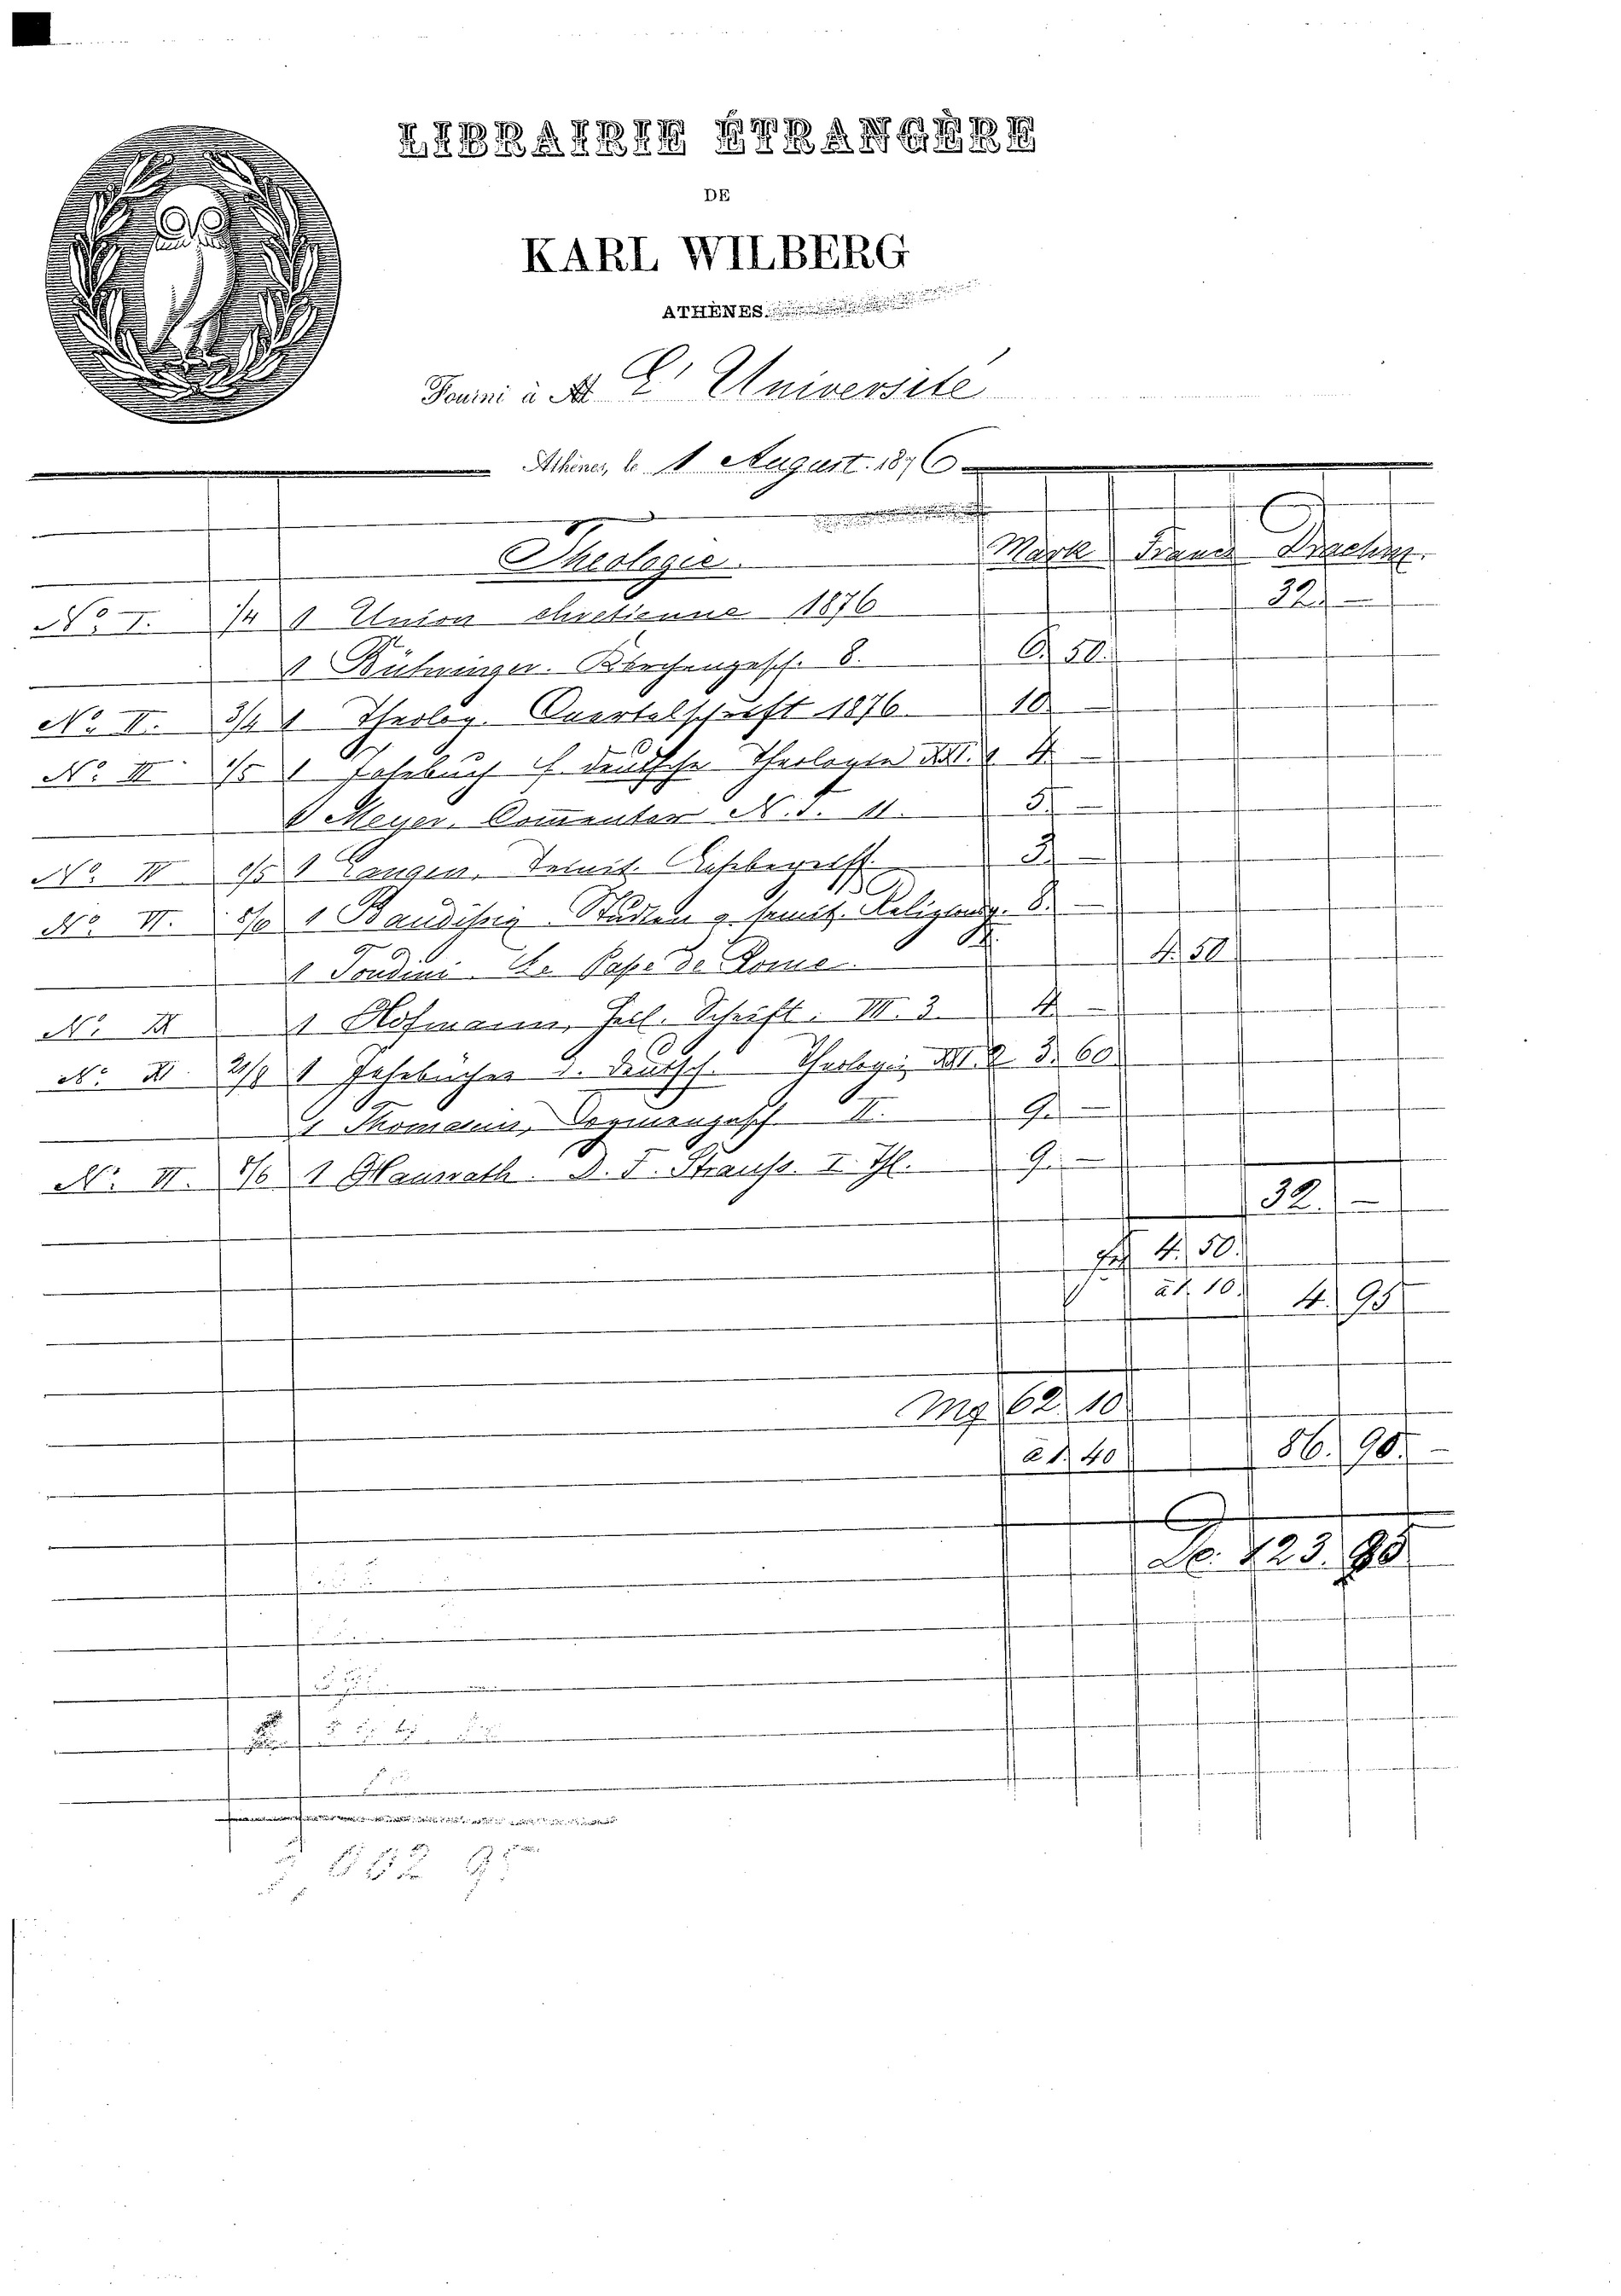 LIBRAIRIE ÉTRANGÈRE
DE
KARL WILBERG
ATHÈNES.
Fourni à M L' Université
Athènes, le 1 August. 1876
Theologie. Mark Francs Drachm.
No. I. 1/4 1 Union chretienne 1876 32. —
1 Bühringer. Kirchengesch. 8. 6. 50.
No. II. 3/4 1 Theolog. Quartalschrift 1876. 10. —
No. III 1/5 1 Jahrbuch f. deutsche Theologie XXI. 1 4 —
1 Meyer. Commentar N. T. 11. 5. —
No. IV 1 Langen. Trinit. 3. —
No. VI. 1 Baudissin Studien z. semit. Religionsg. 8. —
1 Tondini Le Pape de Rome 4. 50
No. 1 Hofmann, Heil. Schrift. VII. 3. 4. —
No. XI. 1 Jahrbücher d. deutsch. Theologie XXI. 2 3. 60
1 Thomasius, Dogmengesch. II. 9. —
No. 1 Hausrath. D. F. Strauss. I. Thl. 9. —
32. —
4. 50.
à 1. 10. 4. 95
62. 10
à 1. 40 86. 90. —
123. 95